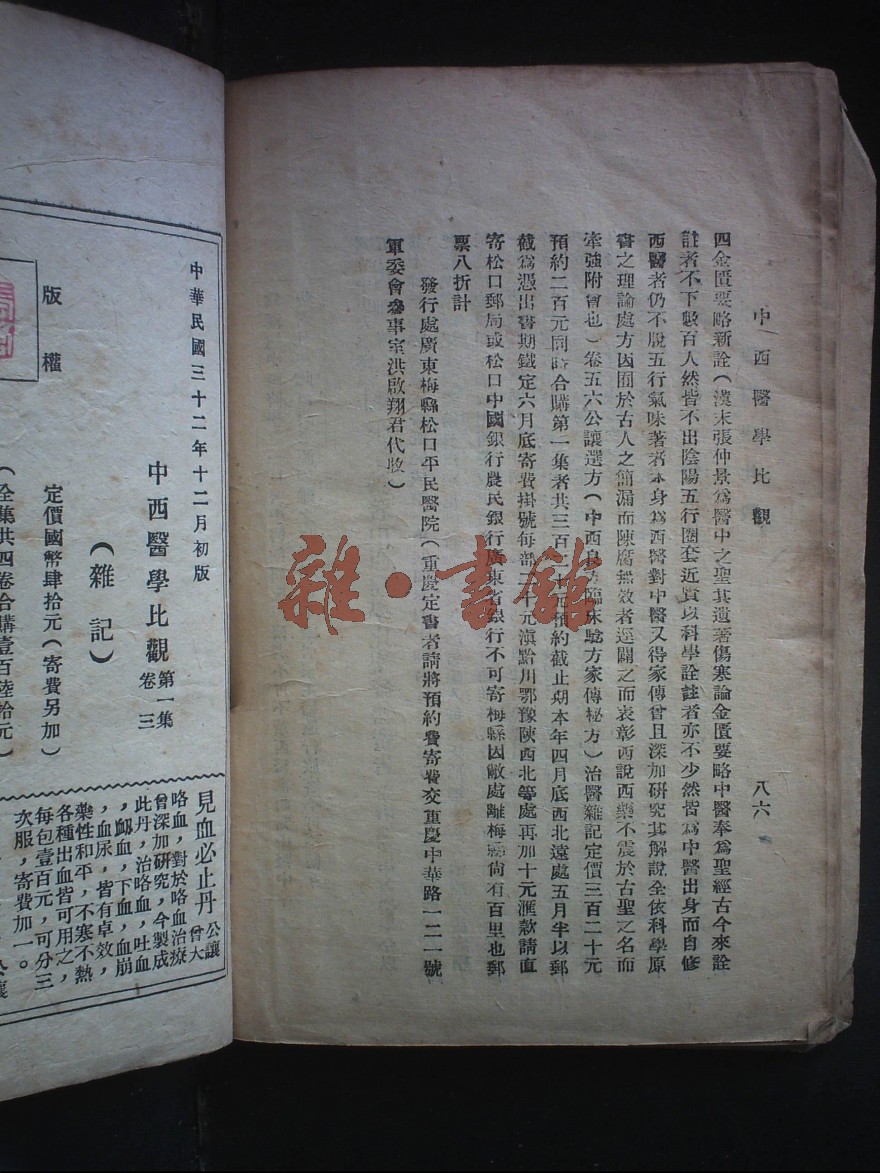 中西醫學比觀
八六
四金匱要略新詮（漢末張仲景爲醫中之聖其遺著傷寒論金匱要略中醫奉爲聖經古今來詮
註者不下數百人然皆不出陰陽五行圈套近賢以科學詮註者亦不少然皆爲中醫出身而自修
西醫者仍不脫五行氣味著者本身爲西醫對中醫又得家傳曾且深加研究其解說全依科學原
書之理論處方因囿於古人之簡漏而陳腐無效者逕闢之而表彰西說西藥不震於古聖之名而
牽強附會也）卷五六公讓選方（中西良方臨床驗方家傳秘方）治醫雜記定價三百二十元
預約二百元同時合購第一集者共三百二十元預約截止期本年四月底西北遠處五月半以郵
截爲憑出書期鐵定六月底寄費掛號每部二十元滇黔川鄂豫陝西北等處再加十元滙款請直
寄松口郵局或松口中國銀行農民銀行廣東省銀行不可寄梅縣因敝處離梅縣尙有百里也郵
票八折計
發行處廣東梅縣松口平民醫院（重慶定書者請將預約費寄費交重慶中華路一二一號
軍委會參事室洪啟翔君代收）
雜·書館
中華民國三十二年十二月初版
中西醫學比觀 第一集
卷三
（雜記）
定價國幣肆拾元（寄費另加）
（全集共四卷合購壹百陸拾元）
版權
見血必止丹
公讓曾大
咯血，對於咯血治療
曾深加研究，今製成
此丹，治咯血，吐血
，衄血，下血，血崩
，血尿，皆有卓效，
藥性和平，不寒不熱
各種出血皆可用之，
每包壹百元，可分三
次服，寄費加一。
公讓